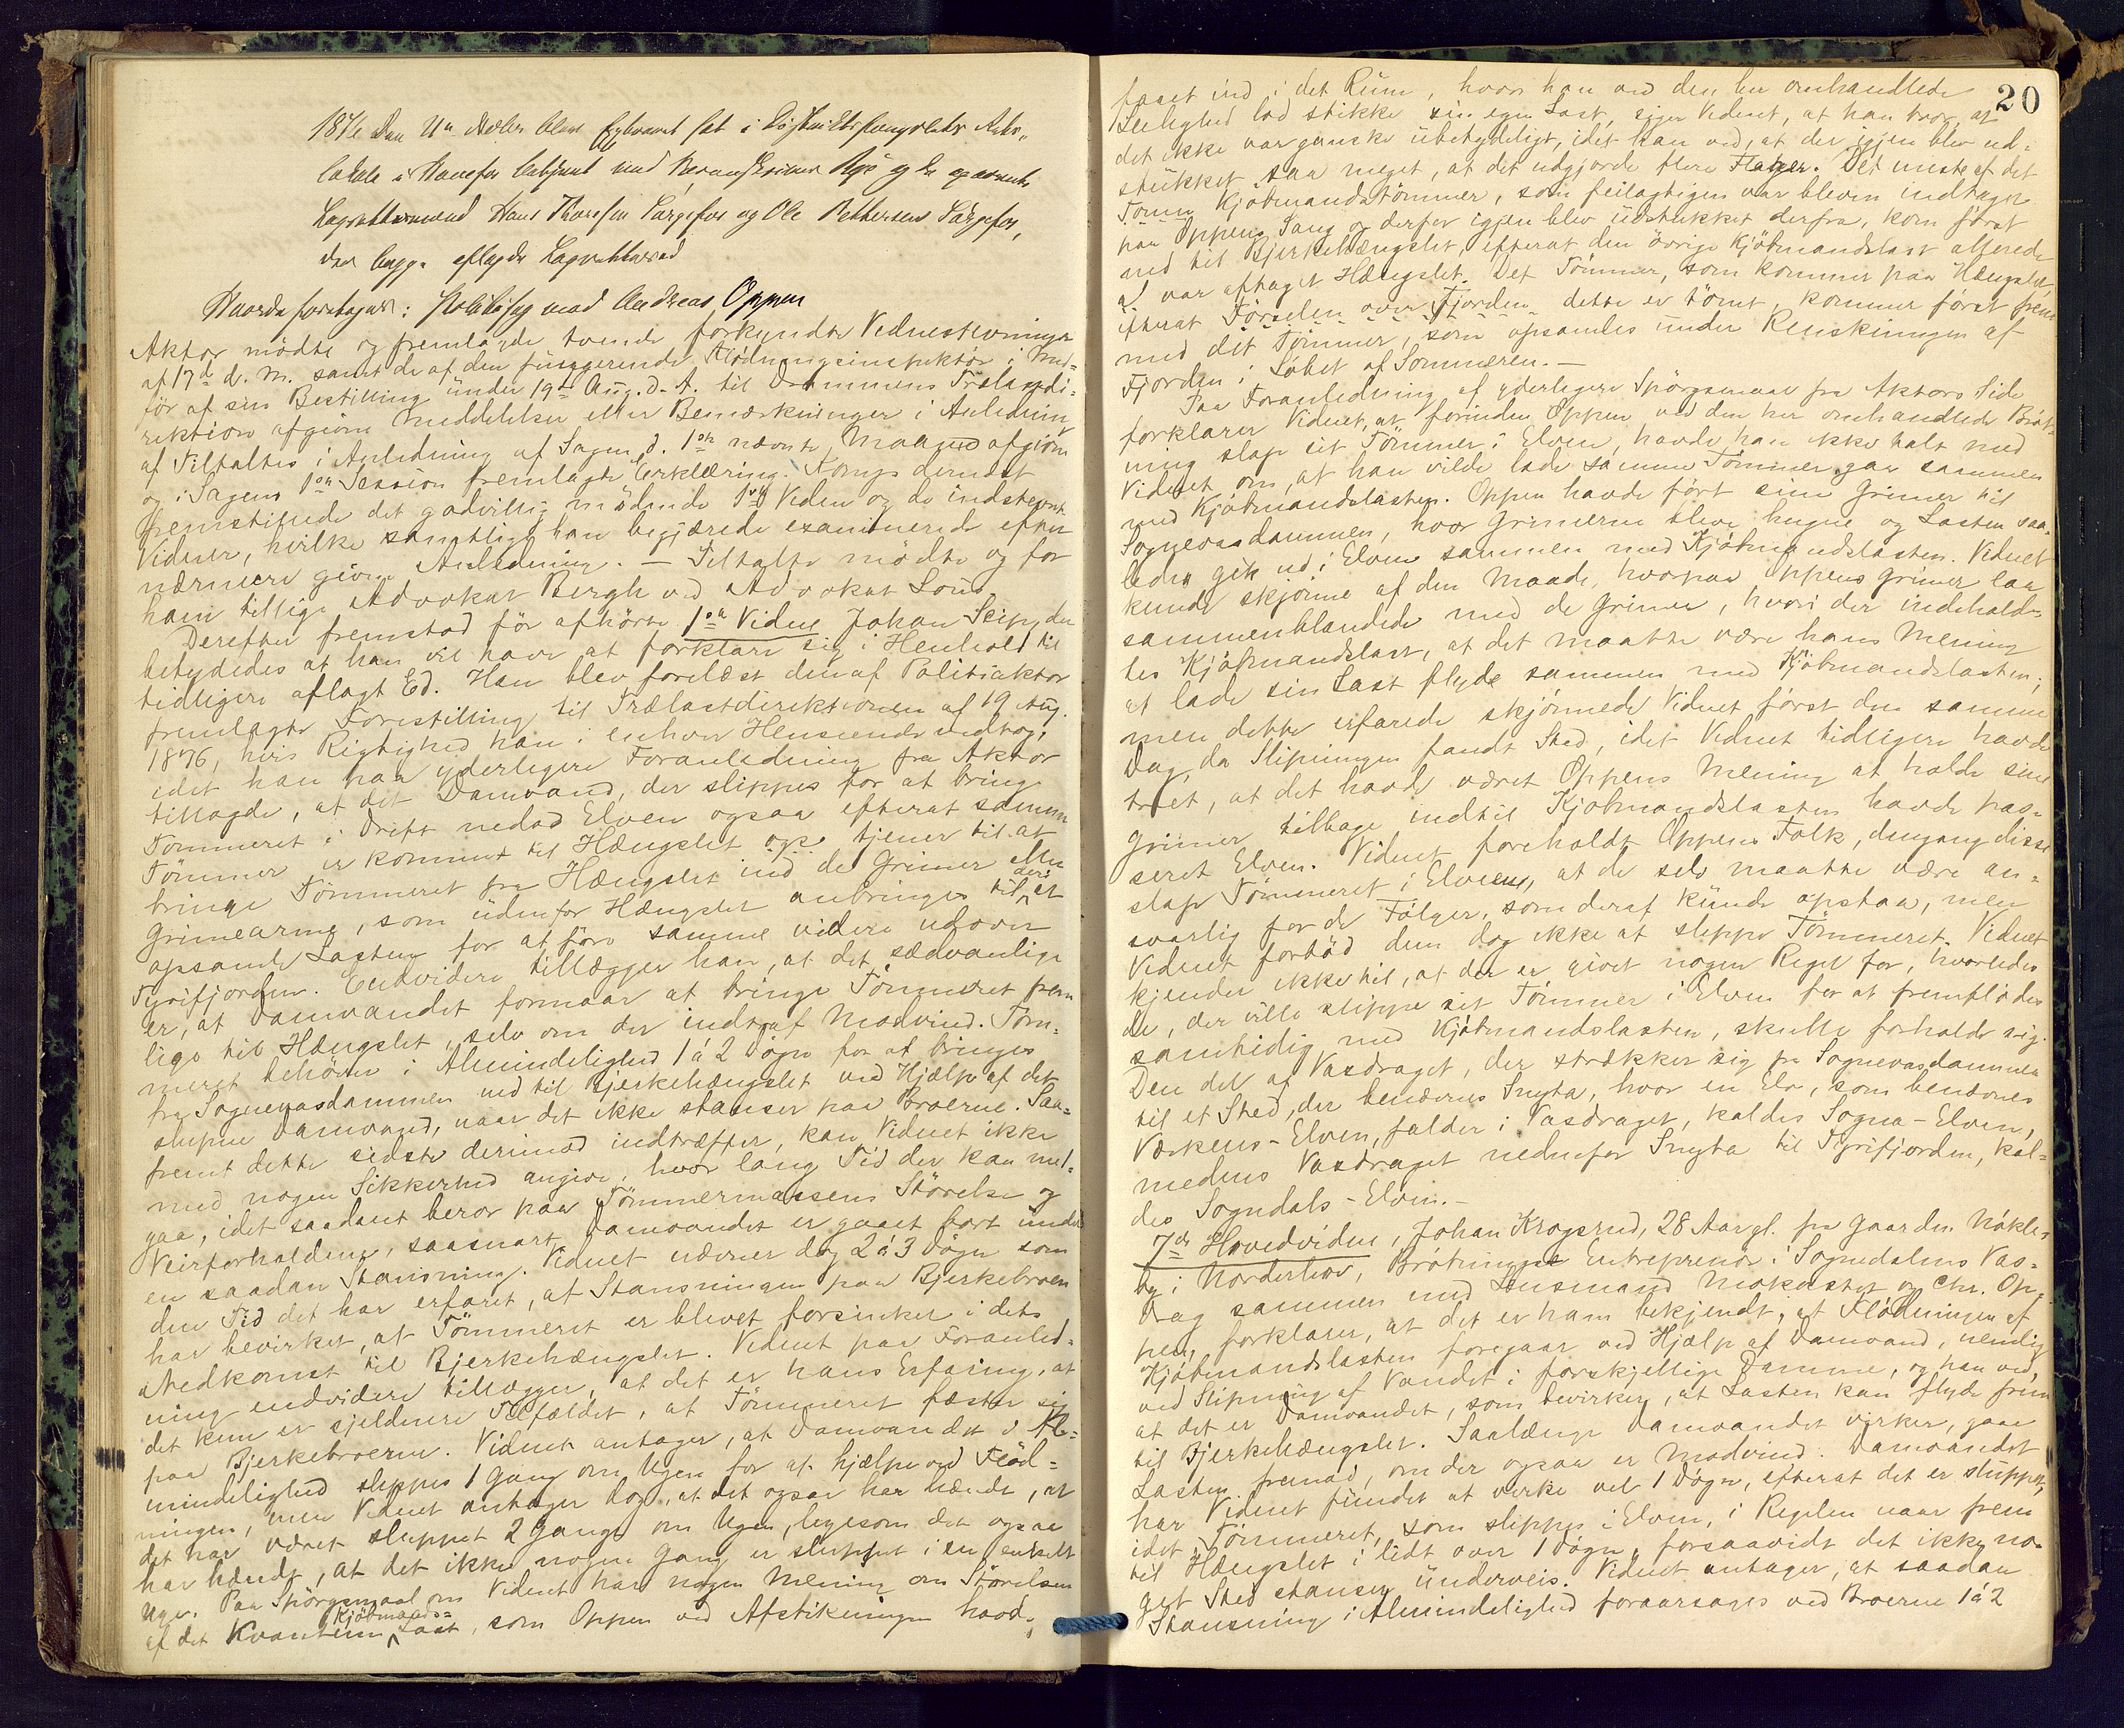 Hvorda foretages: Politisag mod Andreas Oppen
Aktor mödte og fremlagde tvende forkyndte Vidnestevninger
af 17d d. M. samt de af den fungerende Flödningsinspektör i Med-
för af sin Bestilling under 19de Aug. d. A. til Drammens Trælastdi-
rektion afgivne Meddelelser eller Bemærkninger i Anledning
af Tiltaltes i Anledning af Sagen d. 1ste næste Maaned afgivne
og i Sagens 1ste Session fremlagte Erklæring.
fremstillede det godvillig mödende 1ste Vidne og de indstevnte
Vidner, hvilke samtlige han begjærede examinerede efter
nærmere given Anledning. — Tiltalte mödte og for
ham tillige Advokat Bergh ved Advokat Lous
Derefter fremstod för afhörte 1ste Vidne Johan Seip, der
betydedes at han vil have at forklare sig i Henhold til
tidligere aflagt Ed. Han blev forelæst den af Politiaktor
fremlagte Forestilling til Trælastdirektionen af 19 Aug.
1876, hvis Rigtighed han i enhver Henseende vedtog,
idet han paa yderligere Foranledning fra Aktor
tillagde, at det Damvand, der slippes for at bringe
Tömmeret i Drift nedad Elven ogsaa efterat samme
Tömmer er kommet til Hængslet ogs. tjener til at
bringe Tömmeret fra Hængslet ind i de Grimer eller
Grimearme, som udenfor Hængslet anbringes til der at
opsamle Lasten for at före samme videre udover
Tyrifjorden. Endvidere tillægger han, at det sædvanlige
er, at Damvandet formaar at bringe Tömmeret frem
lige til Hængslet, selv om der indtraf Modvind. Töm-
meret behöver i Almindelighed 1 á 2 Dögn for at bringes
fra Sognevasdammen ned til Bjerkehængslet ved Hjælp af det
slupne Damvand, naar det ikke stanser paa Broerne. Saa-
fremt dette sidste derimod indtræffer, kan Vidnet ikke
med nogen Sikkerhed angive, hvor lang Tid der kan med-
gaa, idet saadant beror paa Tömmermassens Störrelse og
Veirforholdene, saasnart Damvandet er gaaet bort under
en saadan Stansning. Vidnet nævner dog 2 á 3 Dögn som
den Tid det har erfaret, at Stansningen paa Bjerkebroen
har bevirket, at Tömmeret er blevet forsinket i dets
Nedkomst til Bjerkehængslet. Vidnet paa Foranled-
ning endvidere tillægger, at det er hans Erfaring, at
det kun er sjeldnere Tilfældet, at Tömmeret fæster sig
paa Bjerkebroerne. Vidnet antager, at Damvandet i Al-
mindelighed slippes 1 Gang om Ugen for at hjælpe ved Flöd-
ningen, men Vidnet antager dog, at det ogsaa har hændt, at
det har været sluppet 2 Gange om Ugen, ligesom det ogsaa
har hændt, at det ikke nogen Gang er sluppet i en enkelt
Uge. Paa Spörgsmaal om Vidnet har nogen Mening om Störrelsen
af det Kvantum Kjöbmands-Last, som Oppen ved Afstikningen havde
20
faaet ind i det Rum, hvor han ved den her omhandlede
Leilighed lod stikke sin egen Last, siger Vidnet, at han tror, at
det ikke var ganske ubetydeligt, idet han ved, at der igjen blev ud-
stukket saa meget, at det udgjorde flere Flager. Det meste af det
Tömm Kjöbmandstömmer, som feilagtigen var bleven indtaget
paa Oppens Lang og derfor igjen blev udstukket derfra, kom först
ned til Bjerkehængslet, efterat den övrige Kjöbmandslast allerede
var aftaget Hængslet. Det Tömmer, som kommer paa Hængslet,
efterat Förselen over Fjorden dette er tömt, kommer först frem
med det Tömmer, som opsamles under Renskningen af
Fjorden i Löbet af Sommeren. —
Paa Foranledning af yderligere Spörgsmaal fra Aktors Side
forklarer Vidnet, at forinden Oppen ved den her omhandlede Bröt-
ning slap sit Tömmer i Elven, havde han ikke talt med
Vidnet om, at han vilde lade samme Tömmer gaa sammen
med Kjöbmandslasten. Oppen havde fört sine Grimer til
Sognevasdammen, hvor Grimerne bleve hugne og Lasten saa-
ledes gik ud i Elven sammen med Kjöbmandslasten. Vidnet
kunde skjönne af den Maade, hvorpaa Oppens Grimer laa
sammenblandede med de Grimer, hvori der indehold-
tes Kjöbmandslast, at det maatte være hans Mening
at lade sin Last flyde sammen med Kjöbmandslasten;
men dette erfarede skjönnede Vidnet först den samme
Dag, da Slipningen fandt Sted, idet Vidnet tidligere havde
troet, at det havde været Oppens Mening at holde sine
Grimer tilbage indtil Kjöbmandslasten havde pas-
seret Elven. Vidnet foreholdt Oppens Folk, dengang disse
slap Tömmeret i Elven, at de selv maatte være an-
svarlig for de Fölger, som deraf kunde opstaa, men
Vidnet forböd dem dog ikke at slippe Tömmeret. Vidnet
kjender ikke til, at der er givet nogen Regel for, hvorledes
de, der ville slippe sit Tömmer i Elven for at fremflödes
samtidig med Kjöbmandslasten, skulle forholde sig.
Den del af Vasdraget, der strækker sig fra Sognevasdammen
til et Sted, der benævnes Snyta, hvor en Elv, som benævnes
Værkens-Elven, falder i Vasdraget, kaldes Sogna-Elven,
medens Vasdraget nedenfor Snyta til Tyrifjorden, kal-
des Sogndals-Elven. —
7de Hovedvidne, Johan Krogsrud, 28 Aar gl. fra Gaarden Nökle-
by i Norderhov, Brötnings Entreprenör i Sogndalens Vas-
drag sammen med Lensmand Mokastet og Chr. Op-
pen, forklarer, at det er ham bekjendt, at Flödningen af
Kjöbmandslasten foregaar ved Hjælp af Damvand, nemlig
ved Slipning af Vandet i forskjellige Damme, og han ved,
at det er Damvandet, som bevirker, at Lasten kan flyde frem
til Bjerkehængslet. Saalænge Damvandet virker, gaar
Lasten fremad, om der ogsaa er Modvind. Damvandet
har Vidnet fundet at virke vel 1 Dögn, efterat det er sluppet,
idet Tömmeret, som slippes i Elven, i Regelen naar frem
til Hængslet i lidt over 1 Dögn, forsaavidt det ikke no-
get Sted stanser underveis. Vidnet antager, at saadan
Stansning i Almindelighed foraarsages ved Broerne 1 á 2